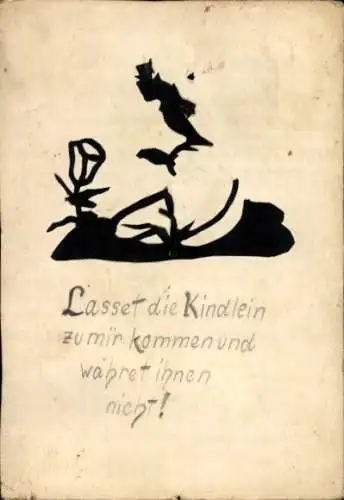 Lasset die Kindlein
zu mir kommen und
wahret ihnen
nicht!